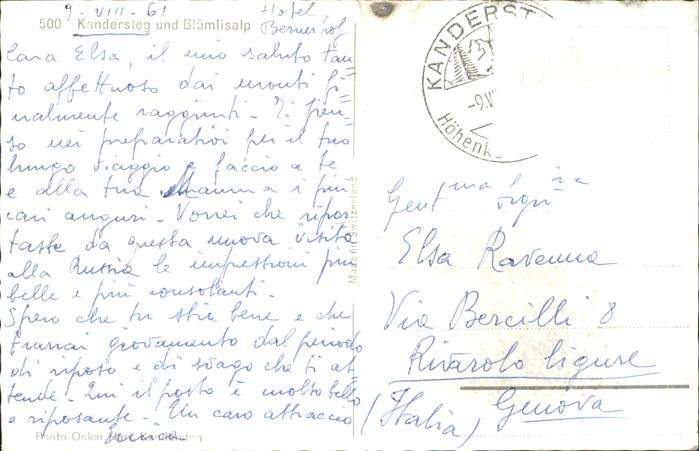 9-VIII-61
Hotel
Bernerhof
500 Kandersteg und Blümlisalp
Cara Elsa, il mio saluto tan-
to affettuoso dai monti fi-
nalmente raggiunti. Ti pen-
so nei preparativi per il tuo
lungo viaggio e faccio a te
e alla tua Mamma i più
cari auguri. Vorrei che ripor-
taste da questa nuova visita
alla Russia le impressioni più
belle e più consolanti.
Spero che tu stia bene e che
trarrai giovamento dal periodo
di riposo e di svago che ti at-
tende. Qui il posto è molto bello
e riposante. Un caro abbraccio
Photo Oskar Kandersteg
Made in Switzerland
KANDERST
-9.V
Höhenk
Gent.ma Sig.na
Elsa Ravenna
Via Bercilli 8
Rivarolo ligure
Genova
(Italia)